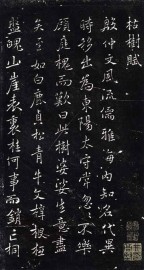 枯樹賦
殷仲文風流儒雅海內知名代異
時移出為東陽太守常忽〻不樂
顧庭槐而歎曰此樹婆娑生意盡
矣至如白鹿貞松青牛文梓根柢
盤魄山崖表裏桂何事而銷亡桐